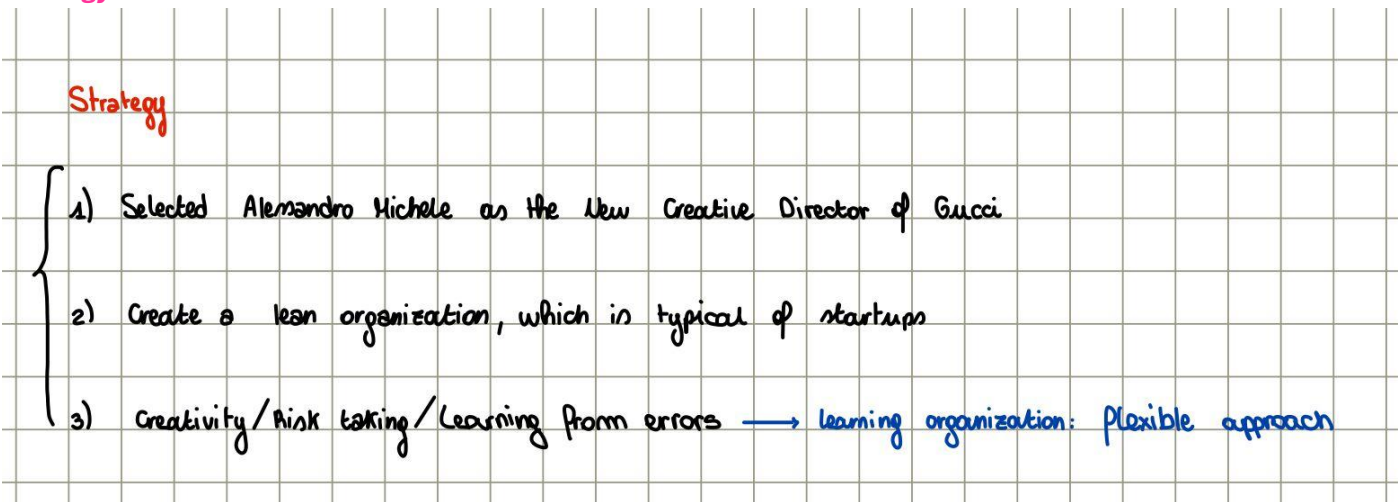 Strategy
1) Selected Alessandro Michele as the New Creative Director of Gucci
2) Create a lean organization, which is typical of startups
3) Creativity/Risk taking/Learning from errors → learning organization: flexible approach